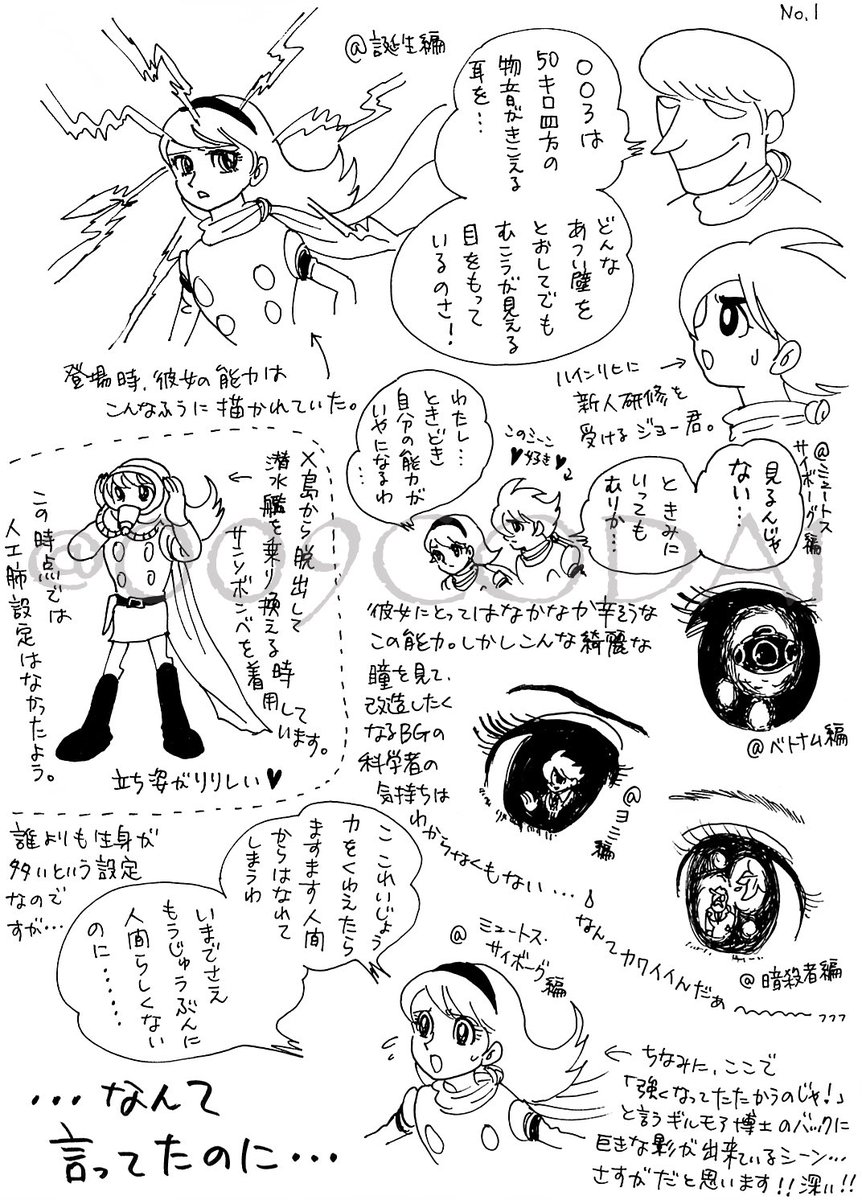 No.1
@誕生編
003は
50キロ四方の
物音がきこえる
耳を…
どんな
あつい壁を
とおしてでも
むこうが見える
目をもって
いるのさ!
登場時、彼女の能力は
こんなふうに描かれていた。
ハインリヒに
新人研修を
受けるジョー君。
わたし…
ときどき
自分の能力が
いやになるわ
このシーン
♥好き♥
@ミュートス
サイボーグ編
見るんじゃ
ない…
ときみに
いっても
むりか…
X島から脱出して
潜水艦を乗り換える時
サンソボンベを着用しています。
この時点では
人工肺設定はなかったよう。
立ち姿がりりしい♥
彼女にとってはなかなか辛そうな
この能力。しかしこんな綺麗な
瞳を見て、
改造したく
なるBGの
科学者の
気持ちは
わからなくもない…
なんてカワイイんだぁ〜〜〜
@ベトナム編
@ヨミ編
@暗殺者編
誰よりも生身が
多いという設定
なので
すが…
こ これいじょう
力をくわえたら
ますます人間
からはなれて
しまうわ
いまでさえ
もうじゅうぶんに
人間らしくない
のに……
@ミュートス・
サイボーグ編
…なんて
言ってたのに…
←ちなみに、ここで
「強くなってたたかうのじゃ!」
と言うギルモア博士のバックに
巨きな影が出来ているシーン…
さすがだと思います!!深い!!
@009CODAI